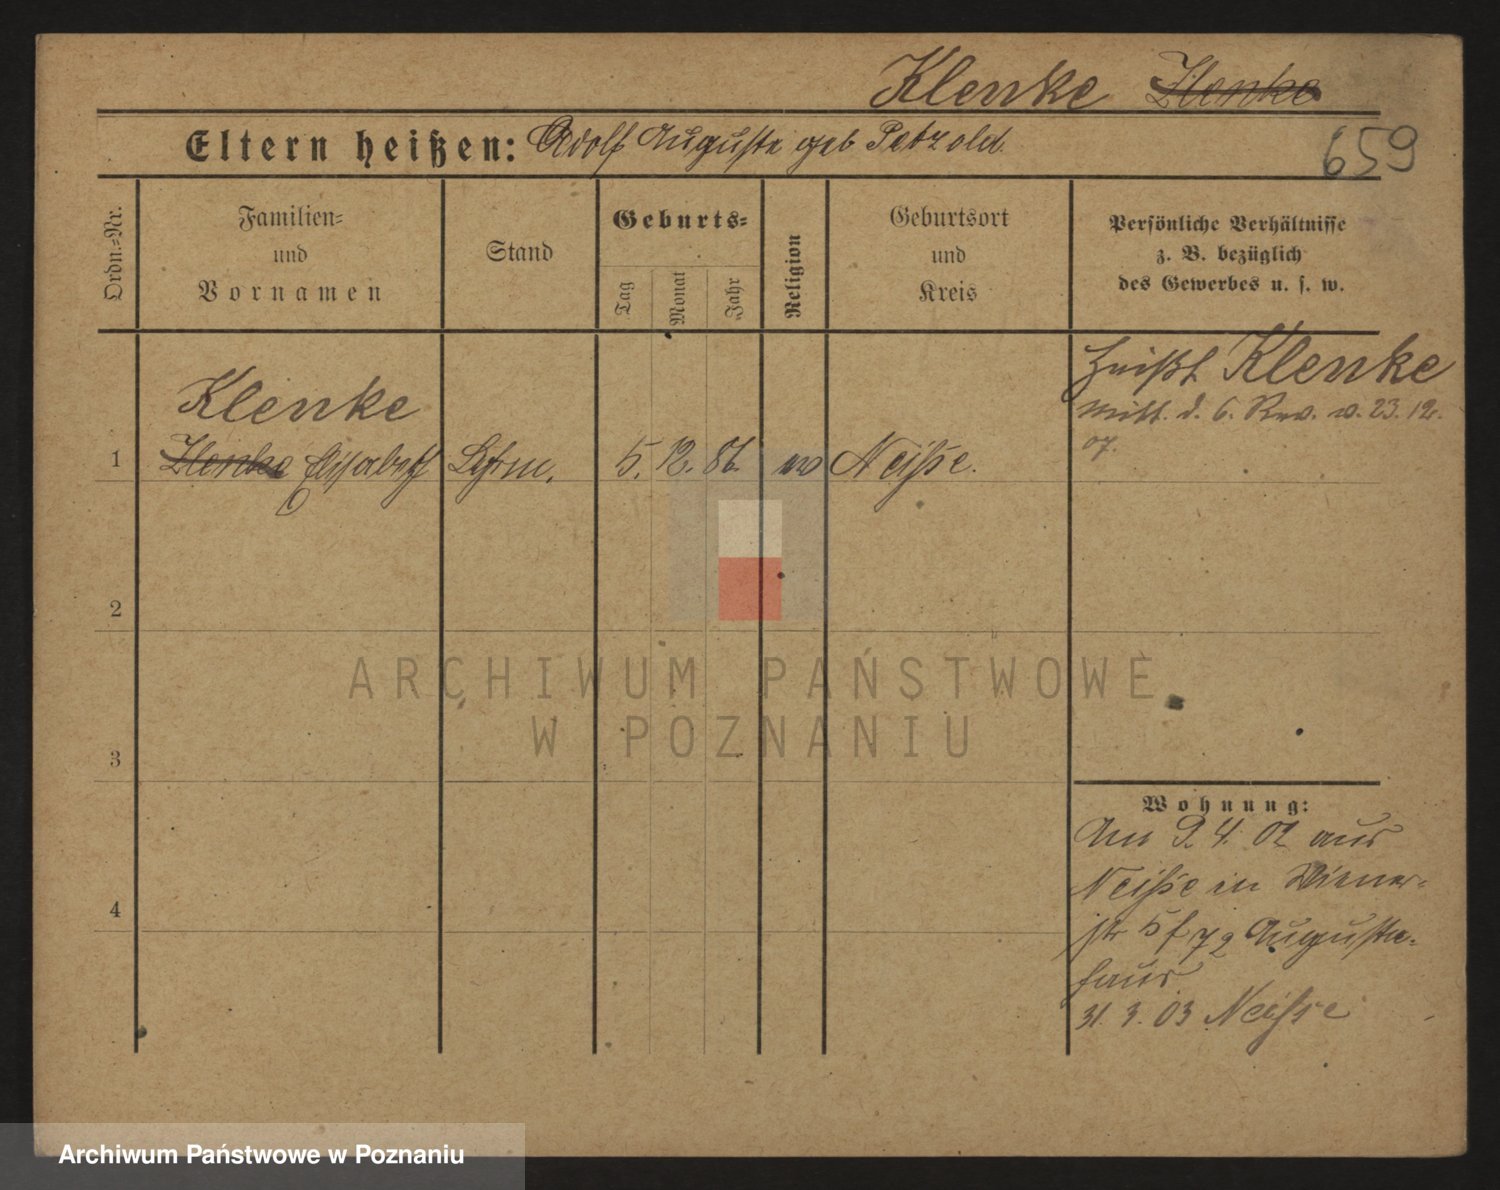 Klenke Zlenke
Eltern heißen: Adolf Auguste geb Petzold.
659
Ordn.-Nr.
Familien-
und
Vornamen
Stand
Geburts-
Tag
Monat
Jahr
Religion
Geburtsort
und
Kreis
Persönliche Verhältnisse
z. B. bezüglich
des Gewerbes u. s. w.
heißt Klenke
Mitt. d. 6. Rev. v. 23.12.
07.
Klenke
1 Zlenke Elisabeth 5. 12. 86 ev Neisse.
2
3
4
ARCHIWUM PAŃSTWOWE
W POZNANIU
Wohnung:
Am 9. 4. 02 aus
Neisse in Wiener-
str 5 f 72 Augusta-
haus
31. 3. 03 Neisse
Archiwum Państwowe w Poznaniu